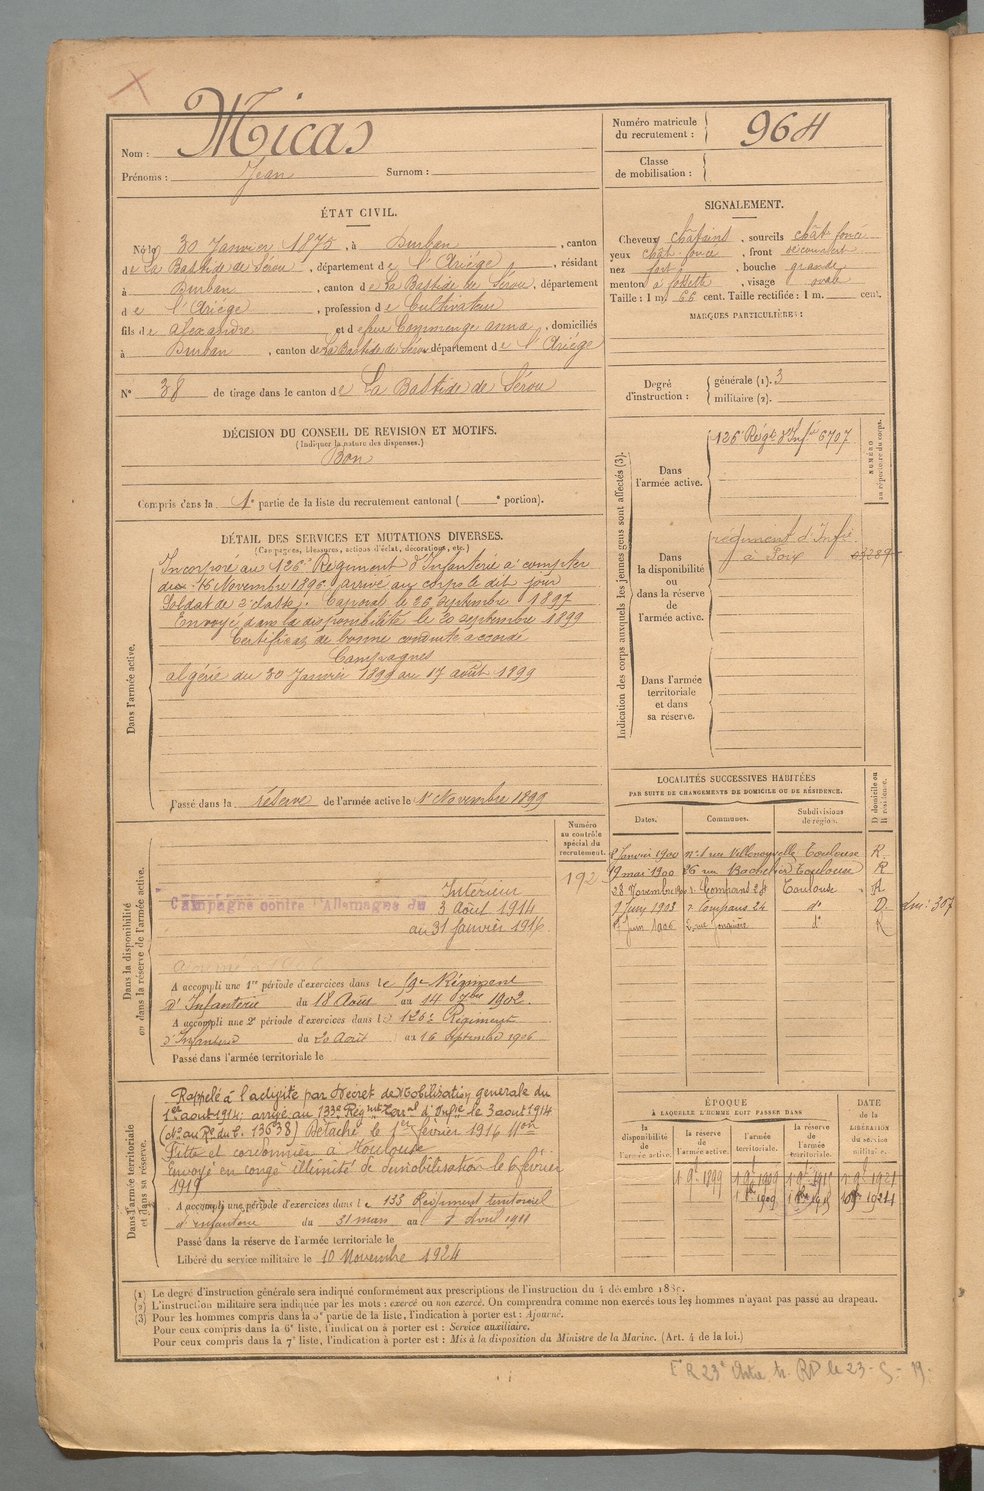 Nom : Micas
Prénoms : Jean Surnom :
Numéro matricule du recrutement : 964
Classe de mobilisation :
ÉTAT CIVIL.
Né le 30 Janvier 1875, à Durban, canton
de La Bastide de Sérou, département de l'Ariège, résidant
à Durban, canton de La Bastide de Sérou, département
de l'Ariège, profession de Cultivateur
fils de Alexandre et de feue Commenge anna, domiciliés
à Durban, canton de La Bastide de Sérou département de l'Ariège
N° 38 de tirage dans le canton de La Bastide de Sérou
SIGNALEMENT.
Cheveux châtains, sourcils chât foncé
yeux chât. foncé, front découvert
nez fort, bouche grande
menton à fossette, visage ovale
Taille : 1 m. 66 cent. Taille rectifiée : 1 m. cent.
MARQUES PARTICULIÈRES :
Degré d'instruction : générale (1). 3
militaire (2).
DÉCISION DU CONSEIL DE REVISION ET MOTIFS.
(Indiquer la nature des dispenses.)
Bon
Compris dans la 1e partie de la liste du recrutement cantonal ( e portion).
DÉTAIL DES SERVICES ET MUTATIONS DIVERSES.
(Campagnes, blessures, actions d'éclat, décorations, etc.)
Dans l'armée active.
Incorporé au 126e Régiment d'Infanterie à compter
du 16 Novembre 1896 arrivé au corps le dit jour
Soldat de 2e classe. Caporal le 26 septembre 1897
Envoyé dans la disponibilité le 20 septembre 1899
Certificat de bonne conduite accordé
Campagnes
algérie du 30 Janvier 1899 au 17 août 1899
Passé dans la réserve de l'armée active le 1er Novembre 1899
Indication des corps auxquels les jeunes gens sont affectés (3).
NUMÉRO au répertoire du corps.
Dans l'armée active.
126e Régt d'Inf. 6707
Dans la disponibilité ou dans la réserve de l'armée active.
régiment d'Infie
à Foix
Dans l'armée territoriale et dans sa réserve.
LOCALITÉS SUCCESSIVES HABITÉES
PAR SUITE DE CHANGEMENTS DE DOMICILE OU DE RÉSIDENCE.
Dates. Communes. Subdivisions de région. D domicile ou R résidence.
8 Janvier 1900 n° 1 rue Villenouvelle Toulouse R.
19 mai 1900 26 rue Bachelier Toulouse R
28 Novembre 1900 r. Compans 28 Toulouse R
9 Juin 1903 r. Compans 24 d° D.
Juin 1906 2, rue Jonquière d° R
Dans la disponibilité ou dans la réserve de l'armée active.
Numéro au contrôle spécial du recrutement.
192
Campagne contre l'Allemagne du
Intérieur
3 Août 1914
au 31 Janvier 1916
A accompli une 1re période d'exercices dans le 59e Régiment
d'Infanterie du 18 Août au 14 7bre 1902.
A accompli une 2e période d'exercices dans le 126e Régiment
d'Infanterie du 20 Août au 16 septembre 1906
Passé dans l'armée territoriale le
Dans l'armée territoriale et dans sa réserve.
Rappelé à l'activité par Décret de Mobilisation générale du
1er août 1914; arrivé au 133e Régiment Terral d'Infie le 3 août 1914
(No au Re du C. 13638) Détaché le 1er février 1916 Mon
Fitte et cordonnier à Toulouse
Envoyé en congé illimité de démobilisation le 6 février
1919
A accompli une période d'exercices dans le 133 Régiment territorial
d'infanterie du 31 mars au Avril 1911
Passé dans la réserve de l'armée territoriale le
Libéré du service militaire le 10 Novembre 1924
ÉPOQUE
À LAQUELLE L'HOMME DOIT PASSER DANS
DATE de la LIBÉRATION du service militaire.
la disponibilité de l'armée active. la réserve de l'armée active. l'armée territoriale. la réserve de l'armée territoriale.
1 9e 1899 1 9e 1909
1909 1924
(1) Le degré d'instruction générale sera indiqué conformément aux prescriptions de l'instruction du 4 décembre 1889.
(2) L'instruction militaire sera indiquée par les mots : exercé ou non exercé. On comprendra comme non exercés tous les hommes n'ayant pas passé au drapeau.
(3) Pour les hommes compris dans la 5e partie de la liste, l'indication à porter est : Ajourné.
Pour ceux compris dans la 6e liste, l'indication à porter est : Service auxiliaire.
Pour ceux compris dans la 7e liste, l'indication à porter est : Mis à la disposition du Ministre de la Marine. (Art. 4 de la loi.)